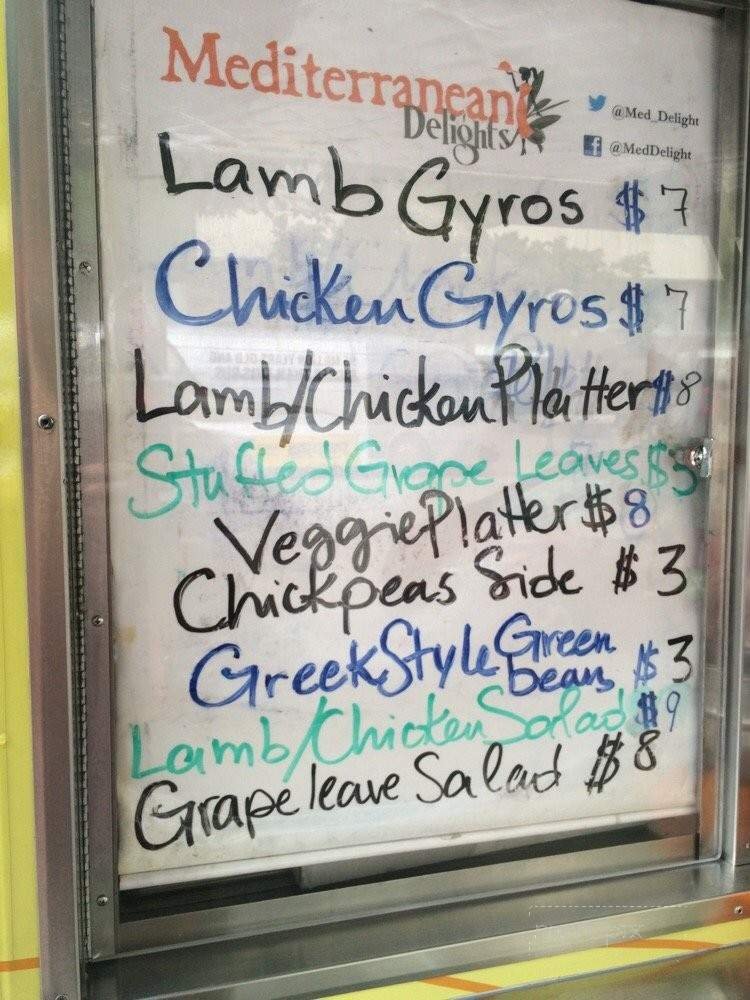 Mediterranean
Delights
@Med_Delight
@MedDelight
Lamb Gyros $ 7
Chicken Gyros $ 7
Lamb/Chicken Platter $8
Stuffed Grape Leaves $3
Veggie Platter $ 8
Chickpeas Side $ 3
Greek Style Green beans $ 3
Lamb/Chicken Salad $9
Grape leave Salad $ 8